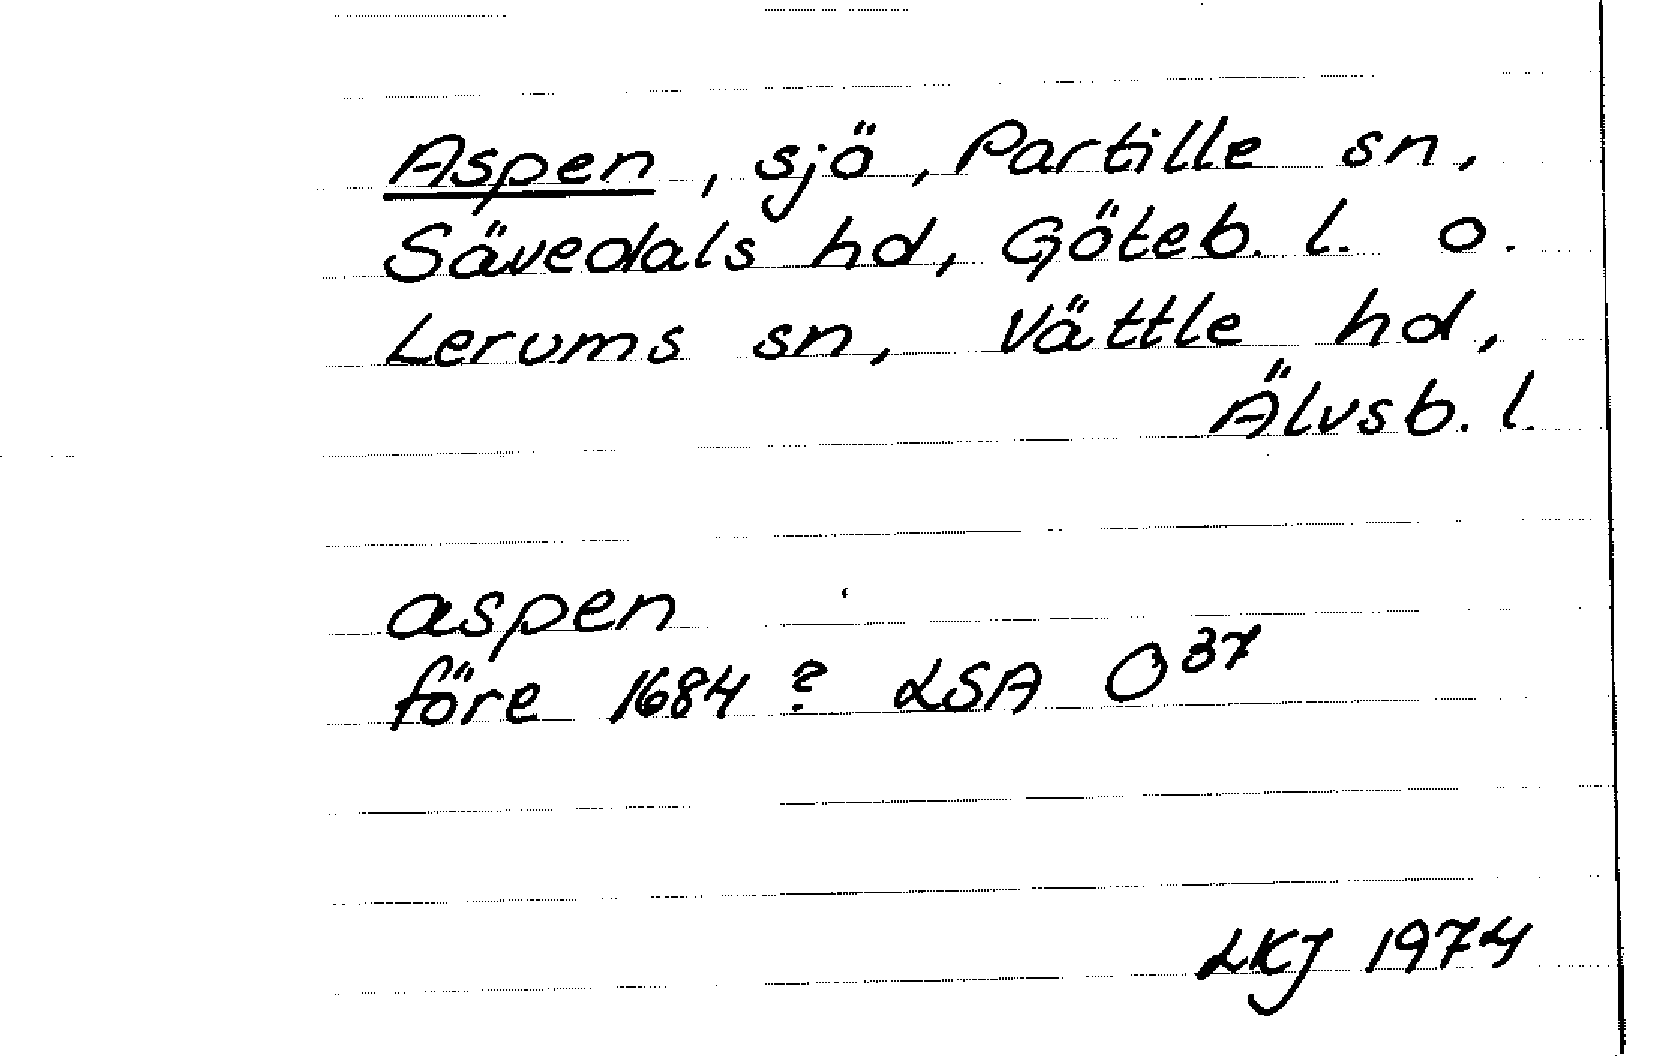 Aspen, sjö, Partille sn,
Sävedals hd, Göteb. l. o.
Lerums sn, Vättle hd,
Älvsb. l.
aspen
före 1684? LSA O³⁷
LKJ 1974